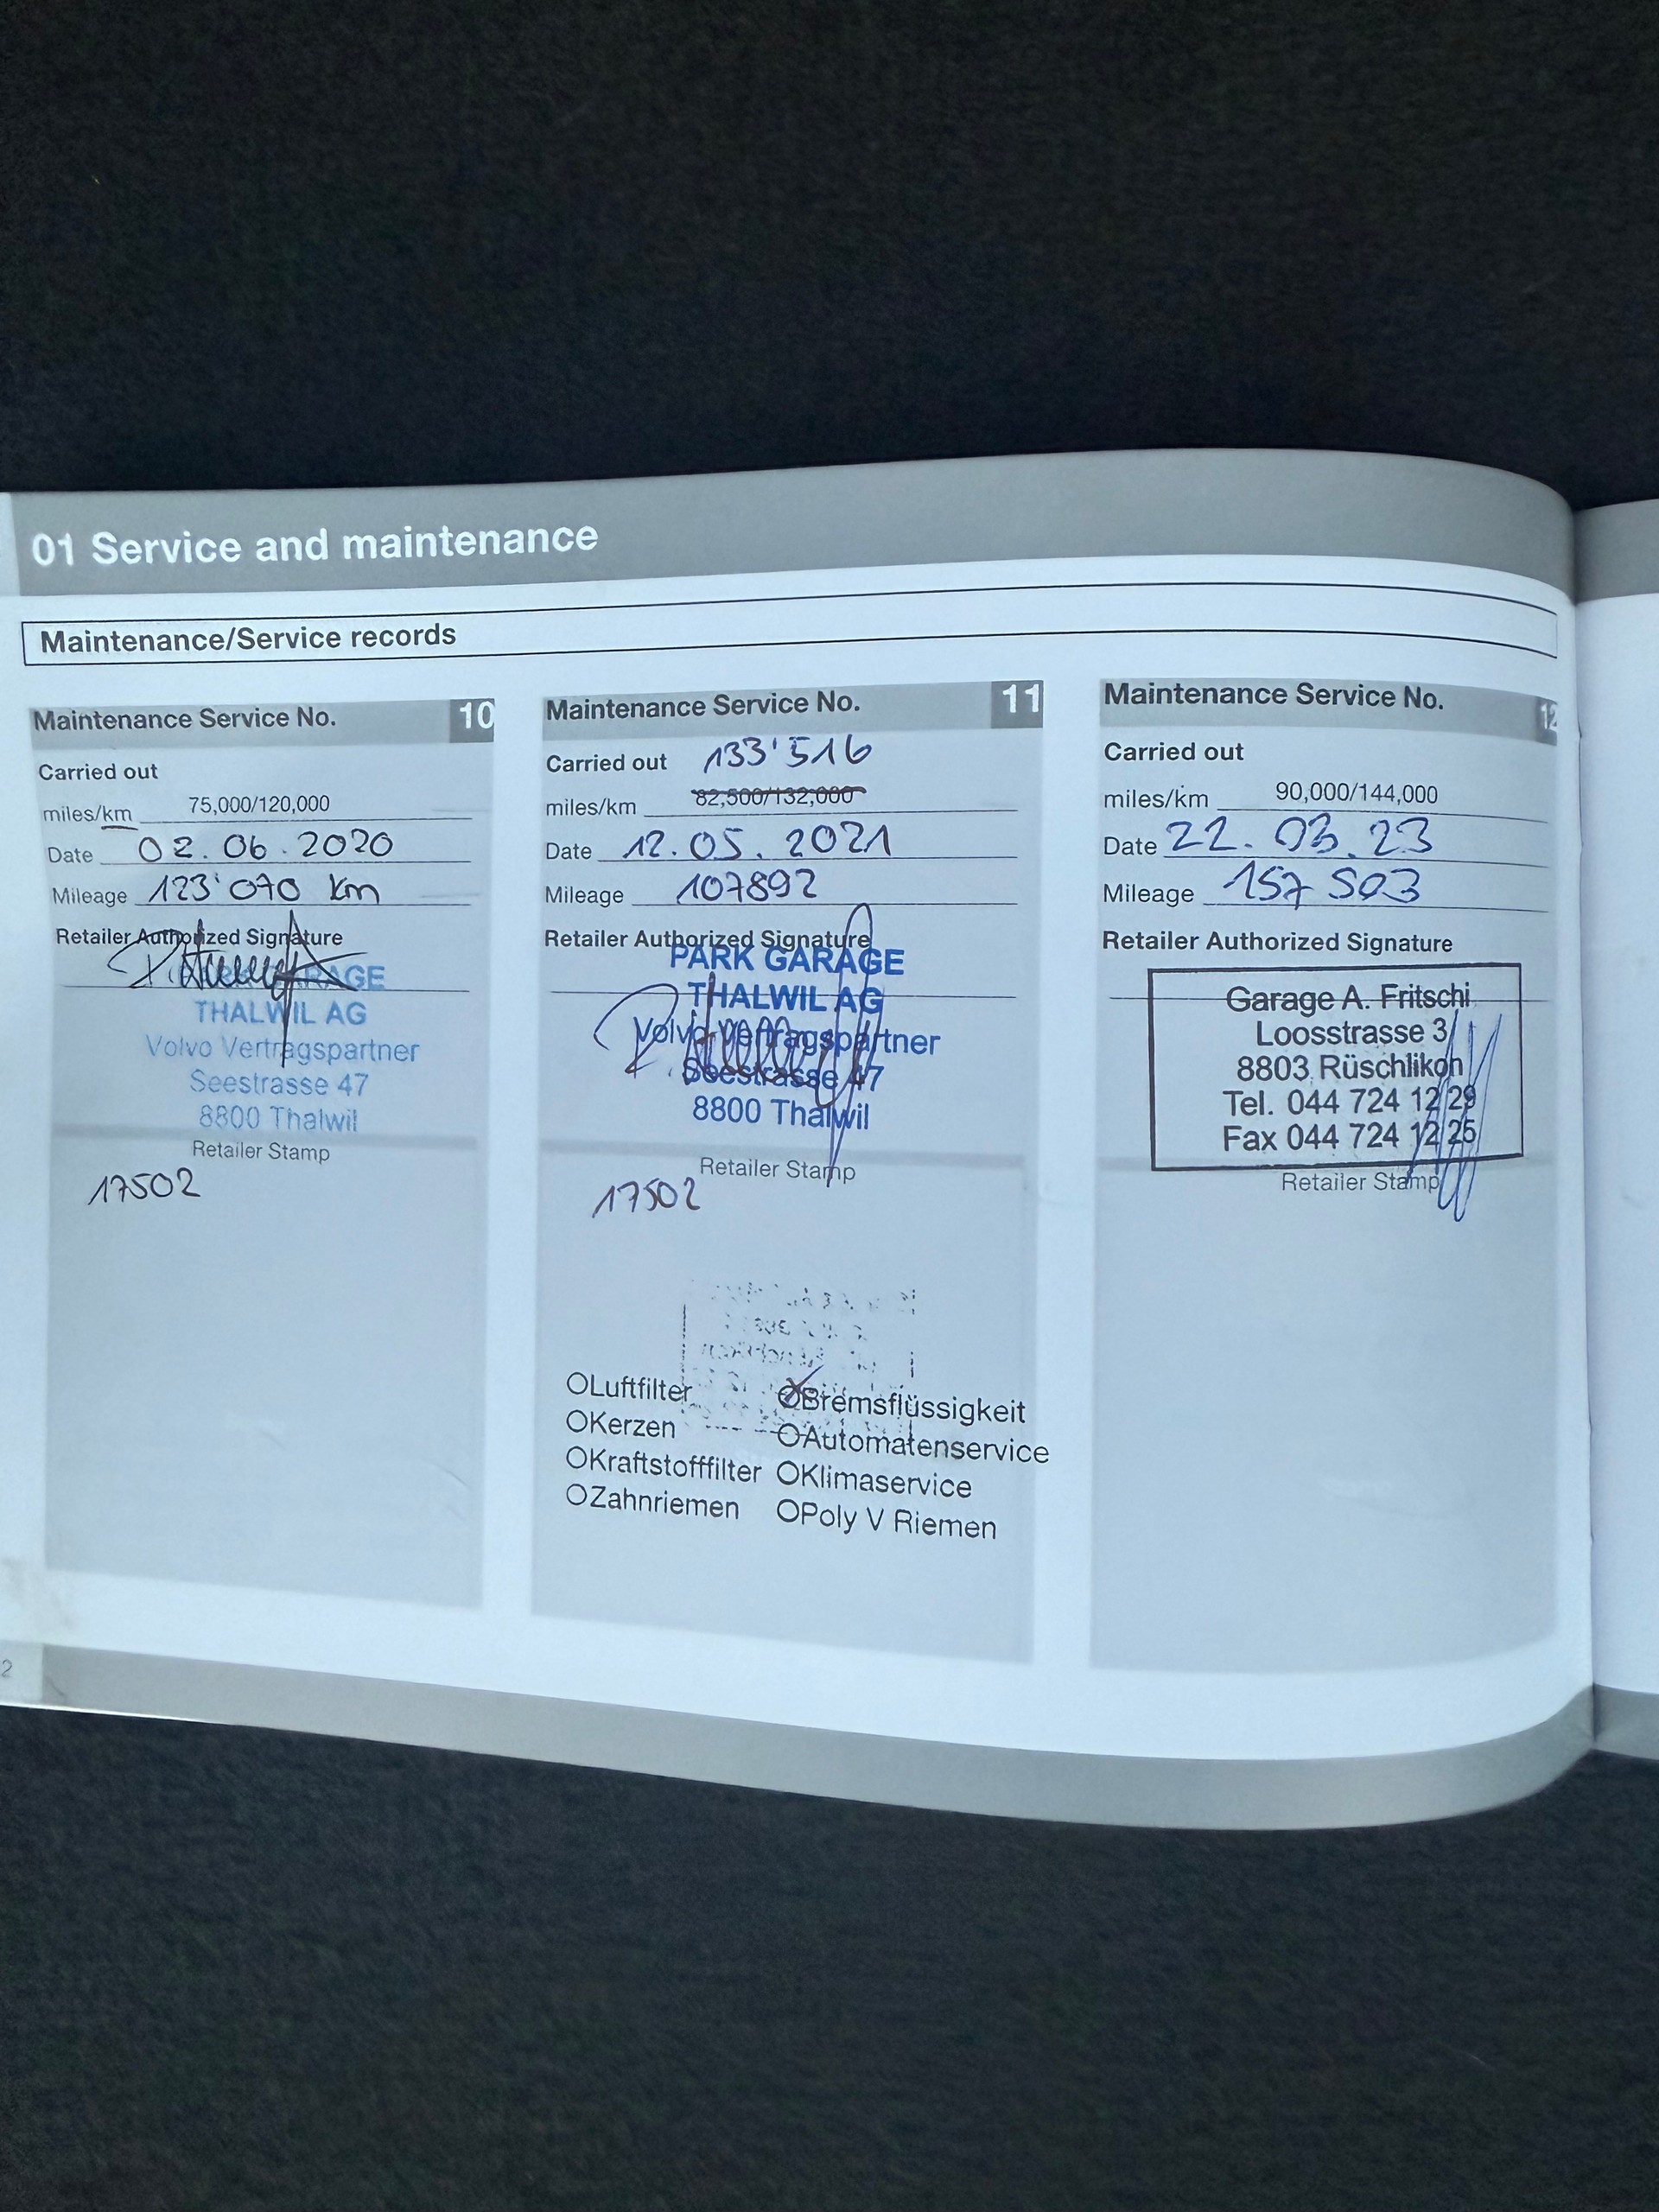 01 Service and maintenance
Maintenance/Service records
Maintenance Service No. 10
Carried out
miles/km 75,000/120,000
Date 02.06.2020
Mileage 123'070 km
Retailer Authorized Signature
THALWIL AG
Volvo Vertragspartner
Seestrasse 47
8800 Thalwil
Retailer Stamp
17502
Maintenance Service No. 11
Carried out 133'516
miles/km 82,500/132,000
Date 12.05.2021
Mileage 107892
Retailer Authorized Signature
PARK GARAGE
THALWIL AG
Volvo Vertragspartner
Seestrasse 47
8800 Thalwil
Retailer Stamp
17502
Luftfilter Bremsflüssigkeit
Kerzen Automatenservice
Kraftstofffilter Klimaservice
Zahnriemen Poly V Riemen
Maintenance Service No. 12
Carried out
miles/km 90,000/144,000
Date 22.03.23
Mileage 157503
Retailer Authorized Signature
Garage A. Fritschi
Loosstrasse 3
8803 Rüschlikon
Tel. 044 724 12 29
Fax 044 724 12 25
Retailer Stamp
2